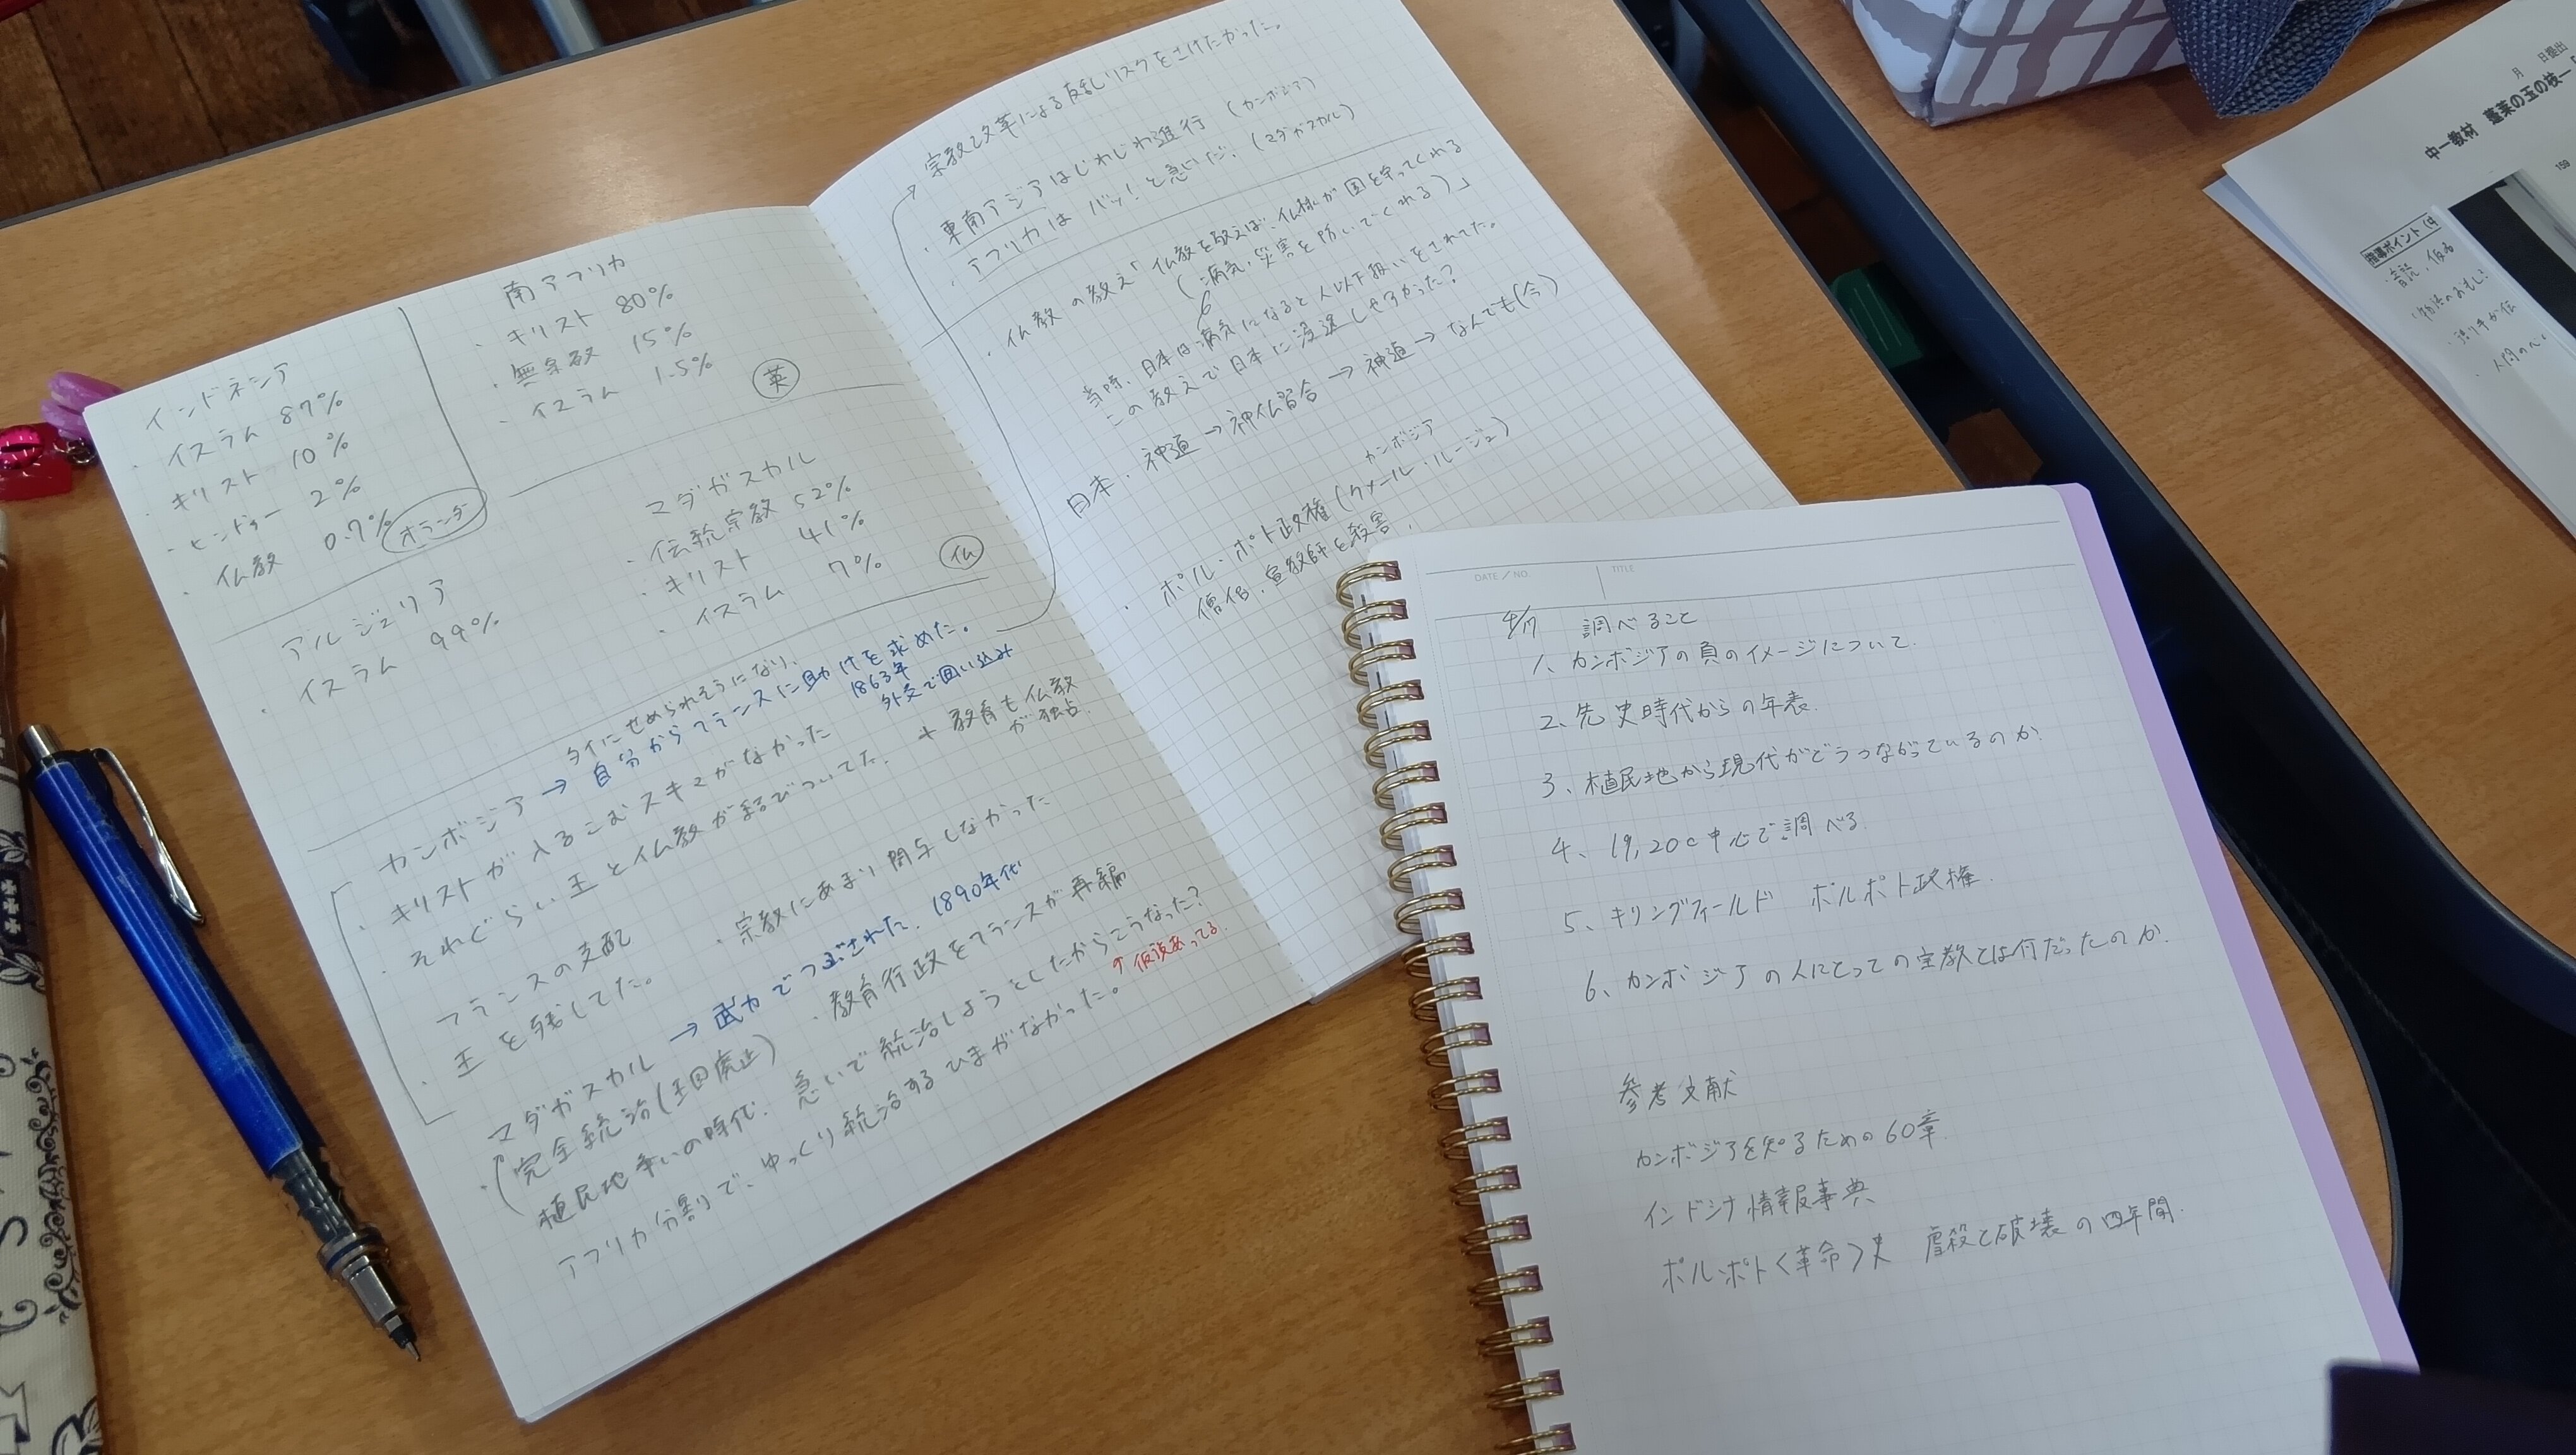 インドネシア
・イスラム 87%
・キリスト 10%
・ヒンドゥー 2%
・仏教 0.7%
オランダ
南アフリカ
・キリスト 80%
・無宗教 15%
・イスラム 1.5%
英
アルジェリア
・イスラム 99%
マダガスカル
・伝統宗教 52%
・キリスト 41%
・イスラム 7%
仏
タイにせめられそうになり、
カンボジア → 自分からフランスに助けを求めた。
1863年
外交で囲い込み
・キリストが入るこむスキマがなかった
・それぐらい王と仏教が結びついてた。
+ 教育も仏教
が独占.
フランスの支配
・王を残してた。
・宗教にあまり関与しなかった
マダガスカル → 武力でつぶされた. 1890年代
・(完全統治(王国廃止)
・教育行政をフランスが再編
植民地争いの時代. 急いで統治しようとしたからこうなった?
↑仮説あってる.
アフリカ分割で、ゆっくり統治するひまがなかった。
→ 宗教改革による反乱リスクをさけたかった。
・東南アジアはじわじわ進行 (カンボジア)
・アフリカは バッ!と急いだ. (マダガスカル)
・仏教の教え「仏教を敬えば、仏様が国を守ってくれる
(病気、災害を防いでくれる)」
当時、日本は病気になると人以下扱いをされてた。
この教えで日本に浸透しやすかった?
日本. 神道 → 神仏習合 → 神道 → なんでも(今)
カンボジア
・ポル・ポト政権(クメール・ルージュ)
僧侶、宣教師を殺害.
DATE / NO.
TITLE
4/17 調べること
1、カンボジアの負のイメージについて.
2、先史時代からの年表.
3、植民地から現代がどうつながっているのか.
4、19, 20c中心で調べる
5、キリングフィールド ポルポト政権.
6、カンボジアの人にとっての宗教とは何だったのか.
参考文献
カンボジアを知るための60章.
インドシナ情報事典
ポル・ポト〈革命〉史 虐殺と破壊の四年間.
月 日提出
中一教材 蓬莱の玉の枝―「
159
指導ポイント
・音読、仮名